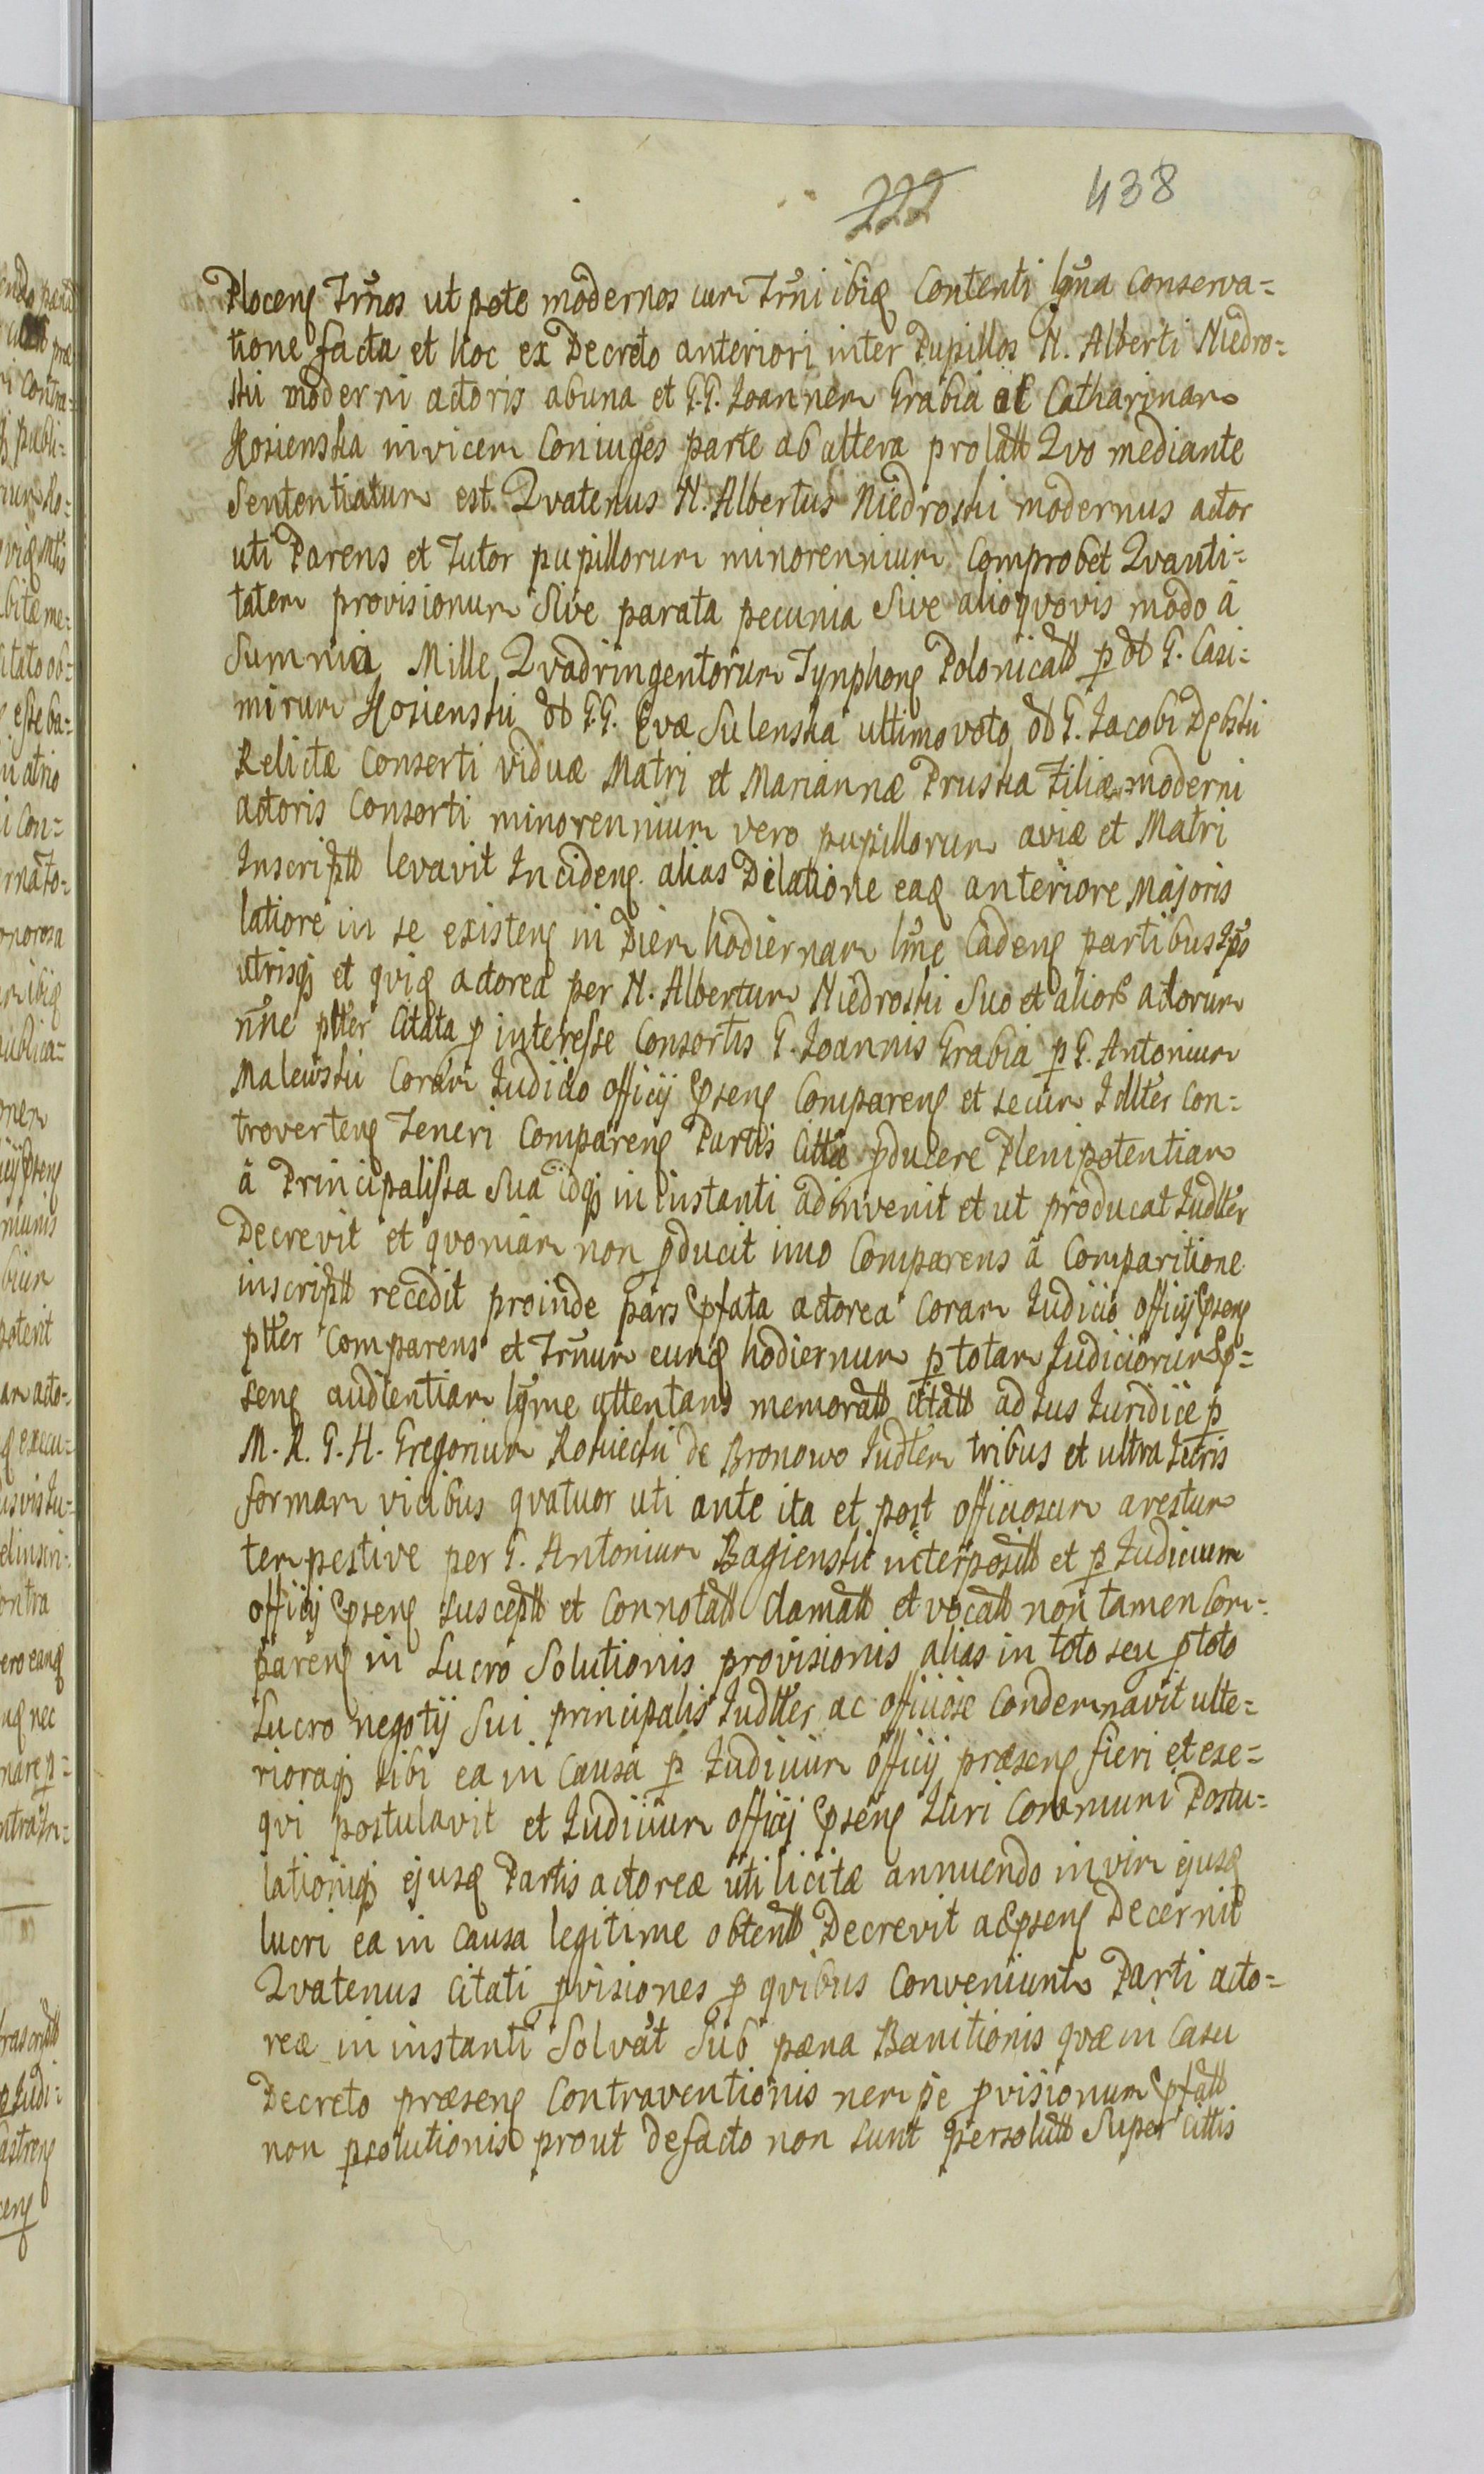 222 438
Plocens Trnos ut pote modernos cum Trni ibiq Contenti lgma conserva=
tione facta et hoc ex Decreto anteriori inter Pupillos N. Alberti Niedro=
ski moderni actoris ab una et G.G. Joannem Grabia ac Catharinam
Kosienska invicem Coniuges parte ab altera prolatt Qvo mediante
Sententiatum est. Qvatenus N. Albertus Niedroski modernus actor
uti Parens et Tutor pupillorum minorennium comprobet Qvanti=
tatem provisionum Sive parata pecunia Sive alioqvovis modo à
Summa Mille Qvadringentorum Tynphons Polonicatt p ddt G. Casi=
mirum Kosienski ddt G.G. Evæ Sulenska ultimo voto ddt G. Jacobi Dębski
Relictæ Consorti viduæ Matri et Mariannæ Pruska Filiæ moderni
actoris Consorti minorennium vero pupillorum aviæ et Matri
Inscriptt levavit Incidens alias Dilatione eaq anteriore Majoris
latiore in se existens in Diem hodiernam lgme Cadens partibus Ipso
utrisq et qviq actorea per N. Albertum Niedroski Suo et alior actorum
nne ptter Citata p interesse Consortis G. Joannis Grabia p G. Antonium
Malewski Coram Judicio officij Epsens Comparens et secum Jdtter Con=
trovertens Teneri Comparens Partis Cittæ pducere Plenipotentiam
à Principalissa Sua idq in instanti adinvenit et ut producat Judtter
Decrevit et qvoniam non pducit imo Comparens à Comparitione
inscriptt recedit proinde pars Epfata actorea Coram Judicio officij Epsens
ptter Comparens et Trnum eunq hodiernum p totam Judiciorum Ep=
sens audientiam lgme attentans memoratt citatt ad Jus Juridice p
M. R. G. H. Gregorium Rokiecki de Bronowo Judtem tribus et ultra Juris
formam vicibus qvatuor uti ante ita et post officiosum arestum
tempestive per G. Antonium Bagienski interpositt et p Judicium
officij Epsens susceptt et Connotatt clamatt et vocatt non tamen Com=
parens in Lucro Solutionis provisionis alias in toto seu p toto
Lucro negotij Sui principalis Judtter ac officiose Condemnavit ulte=
rioraq sibi ea in Causa p Judicium officij præsens fieri et exe=
qvi postulavit et Judicium officij Epsens Juri Communi Postu=
lationiq ejusq Partis actoreæ uti licitæ annuendo in vim ejusq
lucri ea in Causa legitime obtentt Decrevit ac Epsens Decernit
Qvatenus Citati pvisiones p qvibus Conveniunt Parti acto=
reæ in instanti Solvat Sub pæna Banitionis qvæ in Casu
Decreto præsens Contraventionis nempe pvisionum Epfatt
non psolutionis prout defacto non sunt persolutt Super Cittis